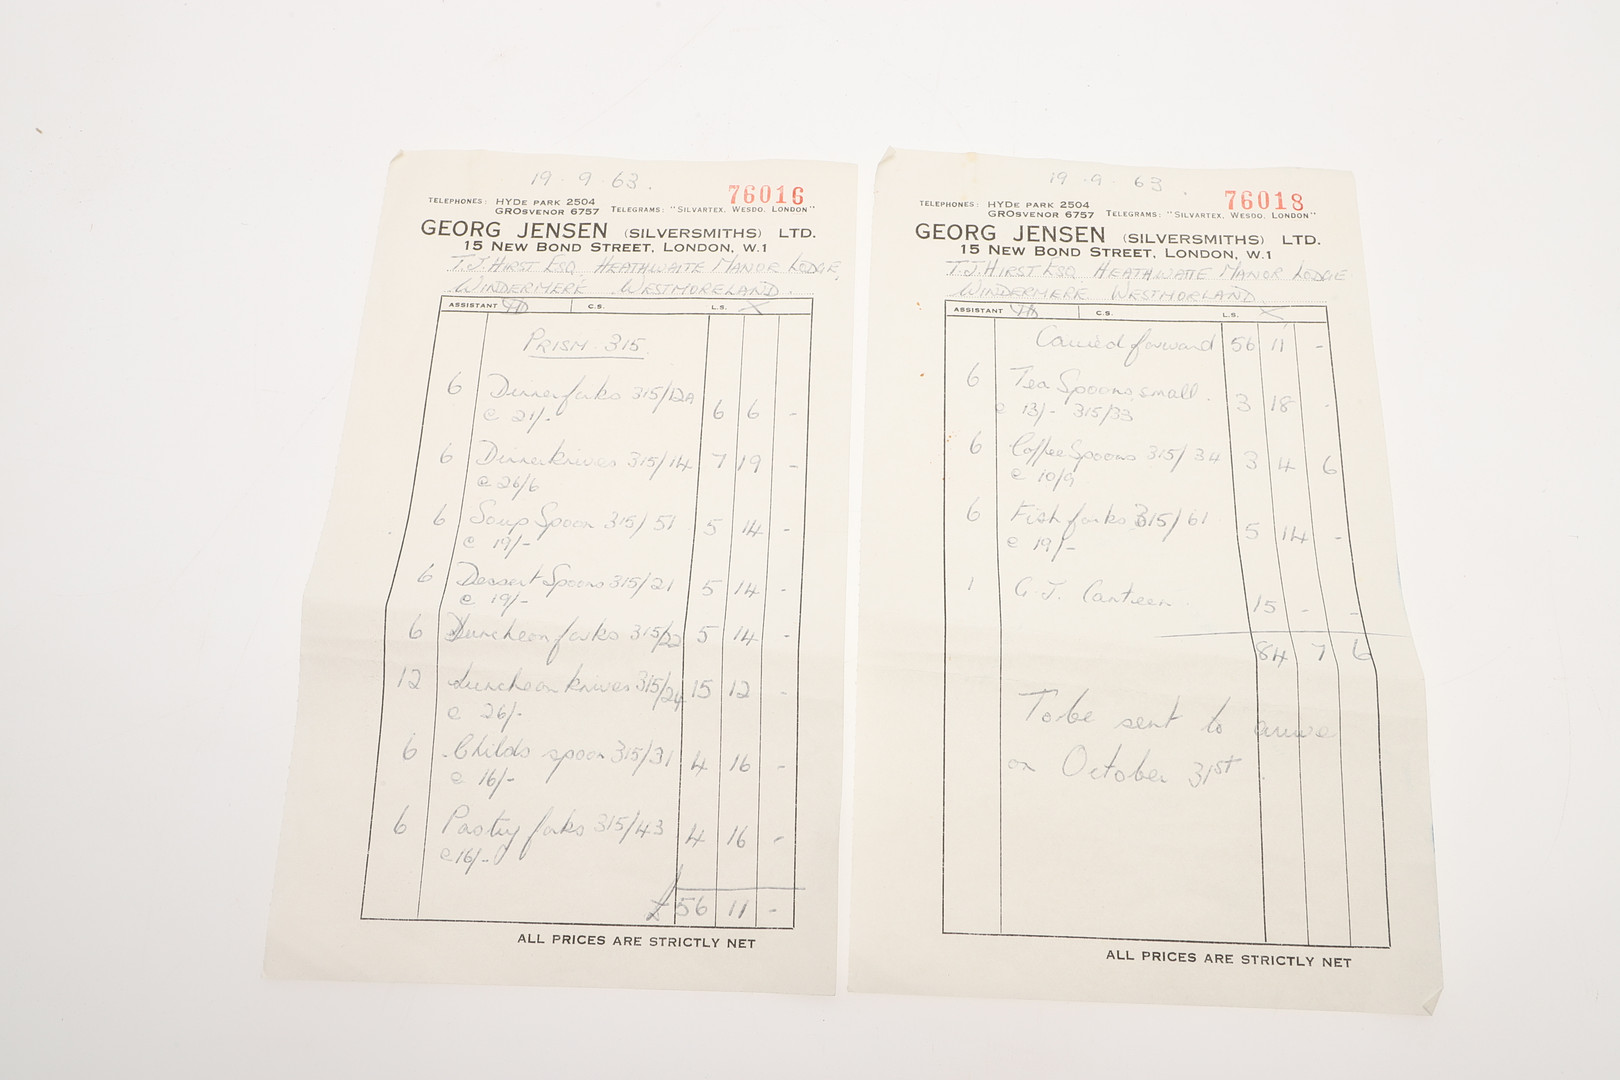 19 - 9 - 63.
76016
TELEPHONES: HYDE PARK 2504
GROSVENOR 6757 TELEGRAMS: "SILVARTEX, WESDO, LONDON"
GEORG JENSEN (SILVERSMITHS) LTD.
15 NEW BOND STREET, LONDON, W.1
T.J. HIRST ESQ. HEATHWAITE MANOR LODGE,
WINDERMERE WESTMORELAND.
ASSISTANT C.S. L.S. X
PRISM 315.
6 Dinner forks 315/12A
@ 21/- 6 6 -
6 Dinner knives 315/14 7 19 -
@ 26/6
6 Soup Spoon 315/51 5 14 -
@ 19/-
6 Dessert Spoons 315/21 5 14 -
@ 19/-
6 Luncheon forks 315/22 5 14 -
12 Luncheon knives 315/24 15 12 -
@ 26/-
6 Childs spoon 315/31 4 16 -
@ 16/-
6 Pastry forks 315/43 4 16 -
@ 16/-
£ 56 11 -
ALL PRICES ARE STRICTLY NET
19 - 9 - 63.
76018
TELEPHONES: HYDE PARK 2504
GROSVENOR 6757 TELEGRAMS: "SILVARTEX, WESDO, LONDON"
GEORG JENSEN (SILVERSMITHS) LTD.
15 NEW BOND STREET, LONDON, W.1
T.J. HIRST ESQ HEATHWAITE MANOR LODGE
WINDERMERE WESTMORLAND.
ASSISTANT C.S. L.S. X
Carried forward 56 11 -
6 Tea Spoons, small. 3 18 -
@ 13/- 315/33
6 Coffee Spoons 315/34 3 4 6
@ 10/9
6 Fish forks 315/61 5 14 -
@ 19/-
1 G.J. Canteen 15 - -
84 7 6
To be sent to arrive
on October 31st.
ALL PRICES ARE STRICTLY NET